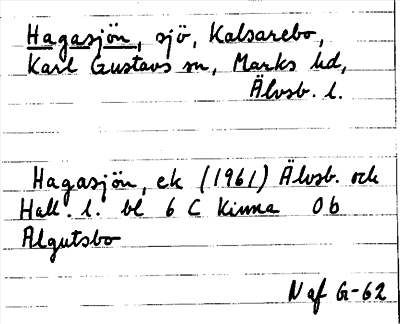 Hagasjön, sjö, Kalsarebo,
Karl Gustavs sn, Marks hd,
Älvsb. l.
Hagasjön, ek (1961) Älvsb. och
Hall. l. bl 6 C Kinna 0b
Algutsbo
N af G-62